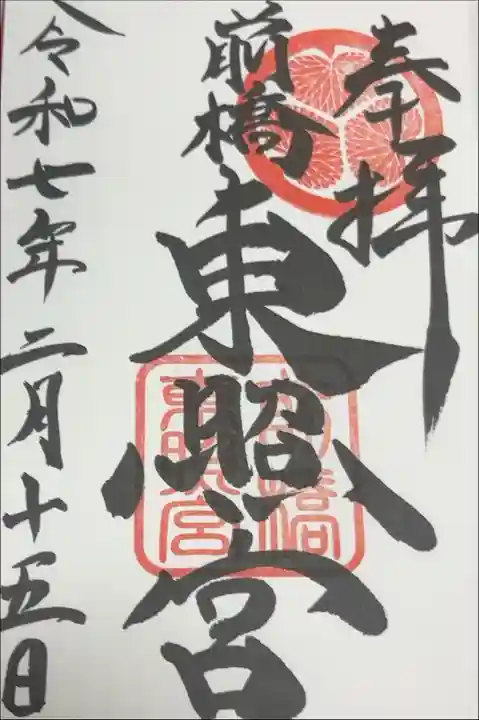 奉拝
前橋
東照宮
前橋
東照宮
令和七年二月十五日